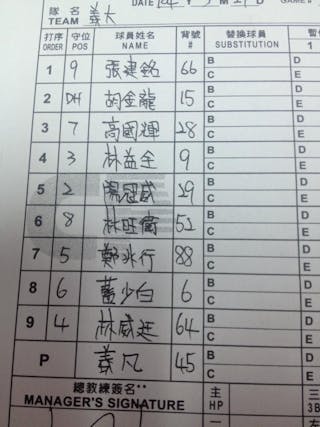 DATE 14 Y 5 M
隊名 義大
TEAM
打序 守位 球員姓名 背號 替換球員
ORDER POS NAME # SUBSTITUTION 1
1 9 張建銘 66 B D
C E
2 DH 胡金龍 15 B D
C E
3 7 高國輝 28 B D
C E
4 3 林益全 9 B D
C E
5 2 陽冠威 29 B D
C E
6 8 林旺衛 52 B D
C E
7 5 鄭兆行 88 B D
C E
8 6 黃少白 6 B D
C E
9 4 林威廷 64 B D
C E
P 義凡 45 B D
C E
總教練簽名** 主 三
MANAGER'S SIGNATURE HP 3B
一 左